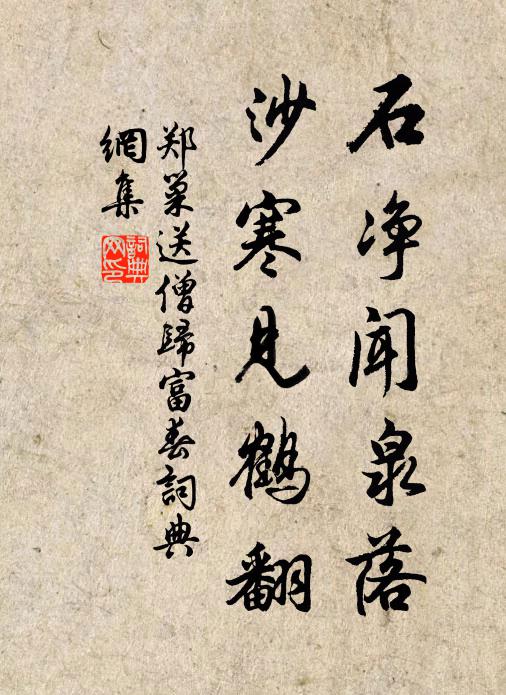 石净闻泉落
沙寒见鹤翻
郑巢送僧歸富春词典
網集
词典
网印